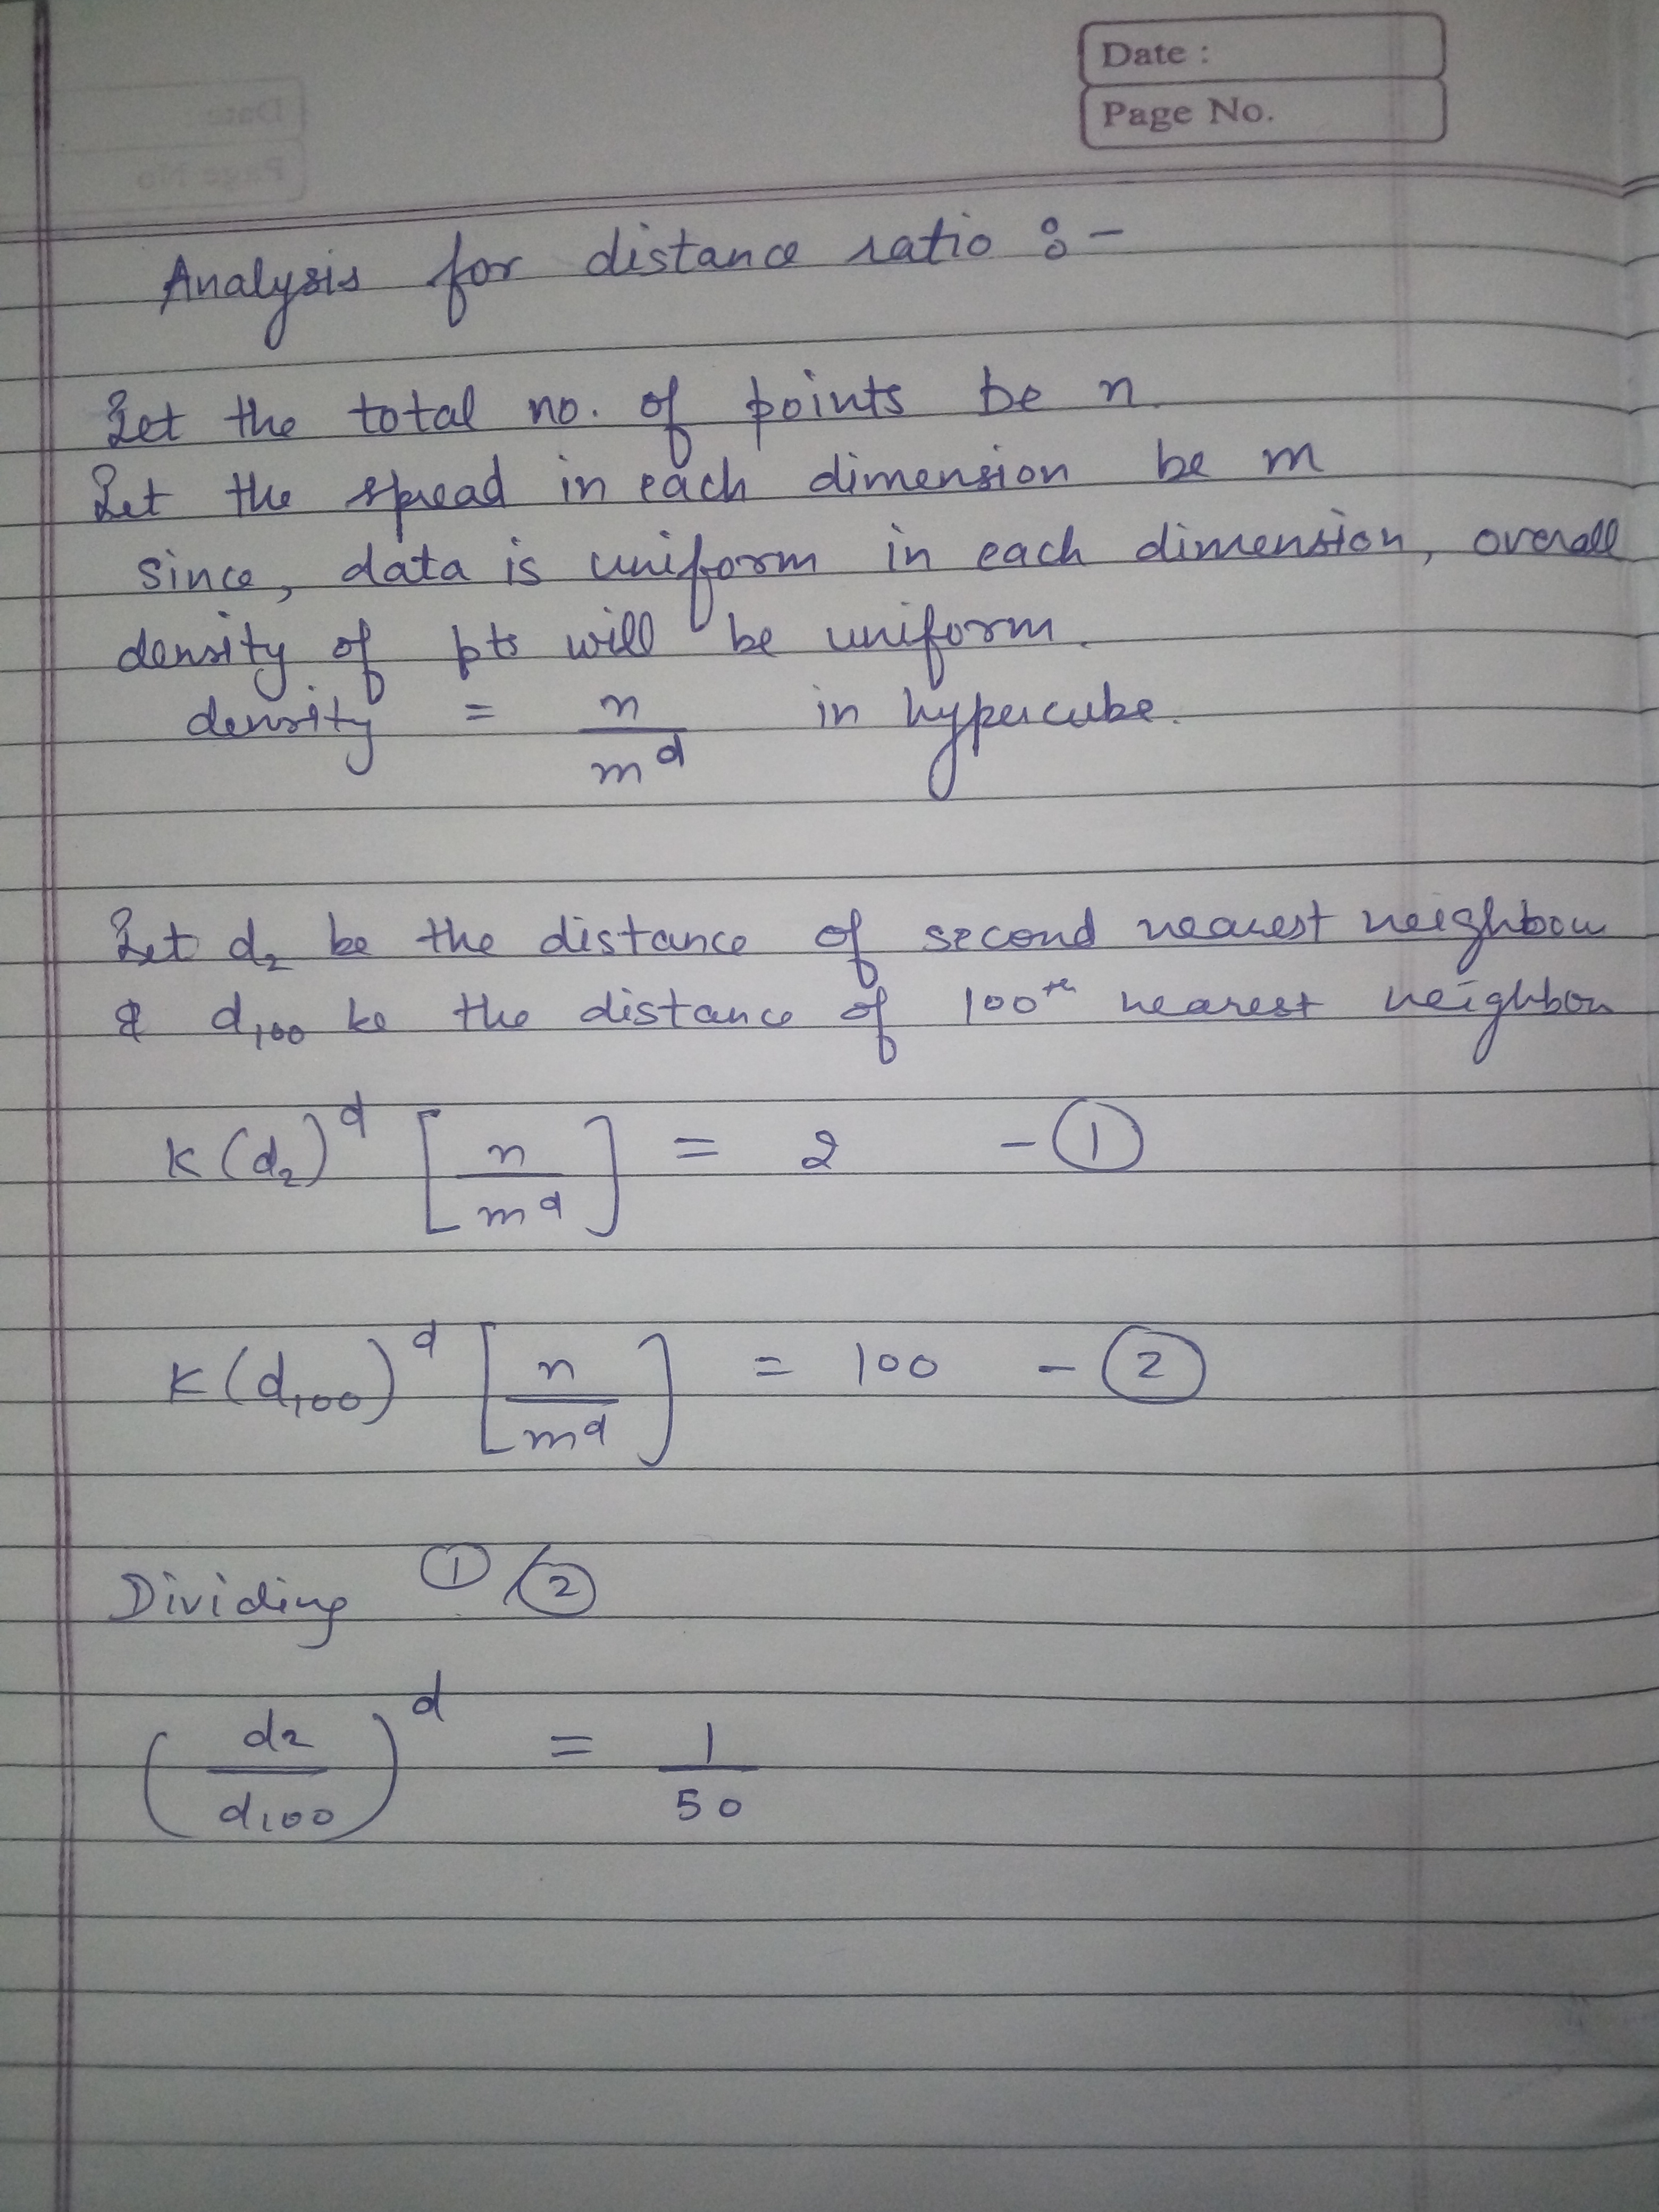 Date :
Page No.
Analysis for distance ratio :-
Let the total no. of points be n.
Let the spread in each dimension be m
since, data is uniform in each dimension, overall
density of pts will be uniform.
density = n/m^d in hypercube.
Let d₂ be the distance of second nearest neighbour
& d₁₀₀ be the distance of 100th nearest neighbour
K(d₂)^d [n/m^d] = 2 - ①
K(d₁₀₀)^d [n/m^d] = 100 - ②
Dividing ①/②
(d₂/d₁₀₀)^d = 1/50